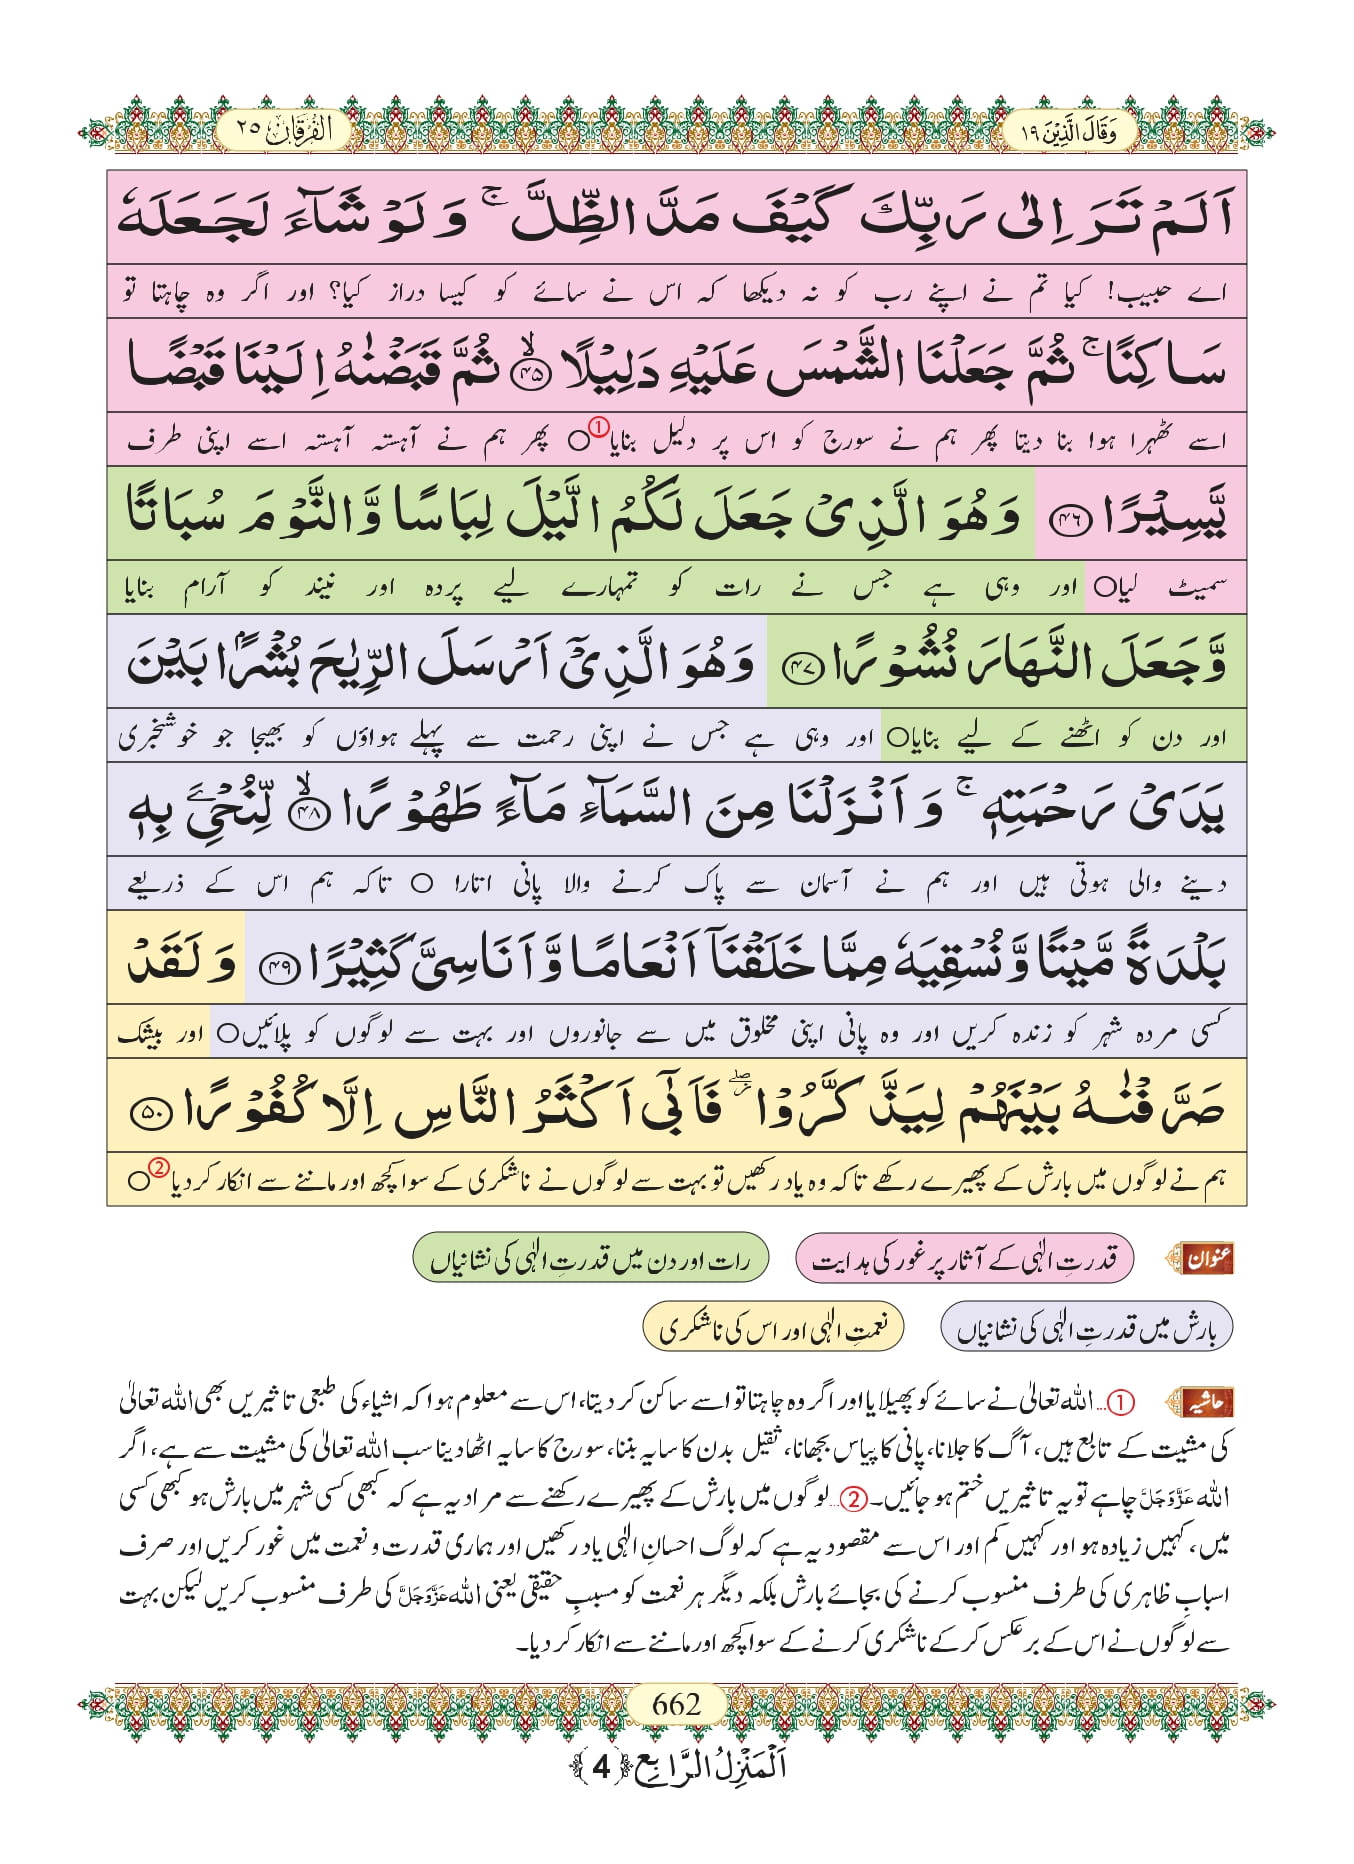 وَقَالَ الَّذِیْنَ ۱۹
الفُرقَان ۲۵
اَلَمْ تَرَ اِلٰى رَبِّكَ كَیْفَ مَدَّ الظِّلَّ ۚ وَ لَوْ شَآءَ لَجَعَلَهٗ
اے حبیب! کیا تم نے اپنے رب کو نہ دیکھا کہ اس نے سائے کو کیسا دراز کیا؟ اور اگر وہ چاہتا تو
سَاكِنًا ۚ ثُمَّ جَعَلْنَا الشَّمْسَ عَلَیْهِ دَلِیْلًا ۙ﴿۴۵﴾ ثُمَّ قَبَضْنٰهُ اِلَیْنَا قَبْضًا
اسے ٹھہرا ہوا بنا دیتا پھر ہم نے سورج کو اس پر دلیل بنایا① ○ پھر ہم نے آہستہ آہستہ اسے اپنی طرف
یَّسِیْرًا ﴿۴۶﴾ وَ هُوَ الَّذِیْ جَعَلَ لَكُمُ الَّیْلَ لِبَاسًا وَّ النَّوْمَ سُبَاتًا
سمیٹ لیا○ اور وہی ہے جس نے رات کو تمہارے لیے پردہ اور نیند کو آرام بنایا
وَّ جَعَلَ النَّهَارَ نُشُوْرًا ﴿۴۷﴾ وَ هُوَ الَّذِیْۤ اَرْسَلَ الرِّیٰحَ بُشْرًۢا بَیْنَ
اور دن کو اٹھنے کے لیے بنایا○ اور وہی ہے جس نے اپنی رحمت سے پہلے ہواؤں کو بھیجا جو خوشخبری
یَدَیْ رَحْمَتِهٖ ۚ وَ اَنْزَلْنَا مِنَ السَّمَآءِ مَآءً طَهُوْرًا ۙ﴿۴۸﴾ لِّنُحْیِۦَ بِهٖ
دینے والی ہوتی ہیں اور ہم نے آسمان سے پاک کرنے والا پانی اتارا ○ تاکہ ہم اس کے ذریعے
بَلْدَةً مَّیْتًا وَّ نُسْقِیَهٗ مِمَّا خَلَقْنَاۤ اَنْعَامًا وَّ اَنَاسِیَّ كَثِیْرًا ﴿۴۹﴾ وَ لَقَدْ
کسی مردہ شہر کو زندہ کریں اور وہ پانی اپنی مخلوق میں سے جانوروں اور بہت سے لوگوں کو پلائیں○ اور بیشک
صَرَّفْنٰهُ بَیْنَهُمْ لِیَذَّكَّرُوْا ۖ٘ فَاَبٰۤى اَكْثَرُ النَّاسِ اِلَّا كُفُوْرًا ﴿۵۰﴾
ہم نے لوگوں میں بارش کے پھیرے رکھے تاکہ وہ یاد رکھیں تو بہت سے لوگوں نے ناشکری کے سوا کچھ اور ماننے سے انکار کر دیا② ○
عنوان قدرتِ الٰہی کے آثار پر غور کی ہدایت رات اور دن میں قدرتِ الٰہی کی نشانیاں
بارش میں قدرتِ الٰہی کی نشانیاں نعمتِ الٰہی اور اس کی ناشکری
حاشیہ ①...اللہ تعالیٰ نے سائے کو پھیلایا اور اگر وہ چاہتا تو اسے ساکن کر دیتا، اس سے معلوم ہوا کہ اشیاء کی طبعی تاثیریں بھی اللہ تعالیٰ
کی مشیت کے تابع ہیں، آگ کا جلانا، پانی کا پیاس بجھانا، ثقیل بدن کا سایہ بننا، سورج کا سایہ اٹھا دینا سب اللہ تعالیٰ کی مشیت سے ہے، اگر
اللہ عَزَّوَجَلَّ چاہے تو یہ تاثیریں ختم ہو جائیں۔ ②...لوگوں میں بارش کے پھیرے رکھنے سے مراد یہ ہے کہ کبھی کسی شہر میں بارش ہو کبھی کسی
میں، کہیں زیادہ ہو اور کہیں کم اور اس سے مقصود یہ ہے کہ لوگ احسانِ الٰہی یاد رکھیں اور ہماری قدرت و نعمت میں غور کریں اور صرف
اسبابِ ظاہری کی طرف منسوب کرنے کی بجائے بارش بلکہ دیگر ہر نعمت کو مسببِ حقیقی یعنی اللہ عَزَّوَجَلَّ کی طرف منسوب کریں لیکن بہت
سے لوگوں نے اس کے برعکس کر کے ناشکری کرنے کے سوا کچھ اور ماننے سے انکار کر دیا۔
662
اَلْمَنْزِلُ الرَّابِع ﴿4﴾